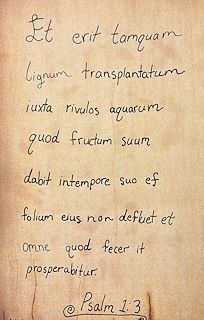 Et erit tamquam
lignum transplantatum
iuxta rivulos aquarum
quod fructum suum
dabit intempore suo ef
folium eius non defluet et
omne quod fecer it
prosperabitur.
Psalm 1:3